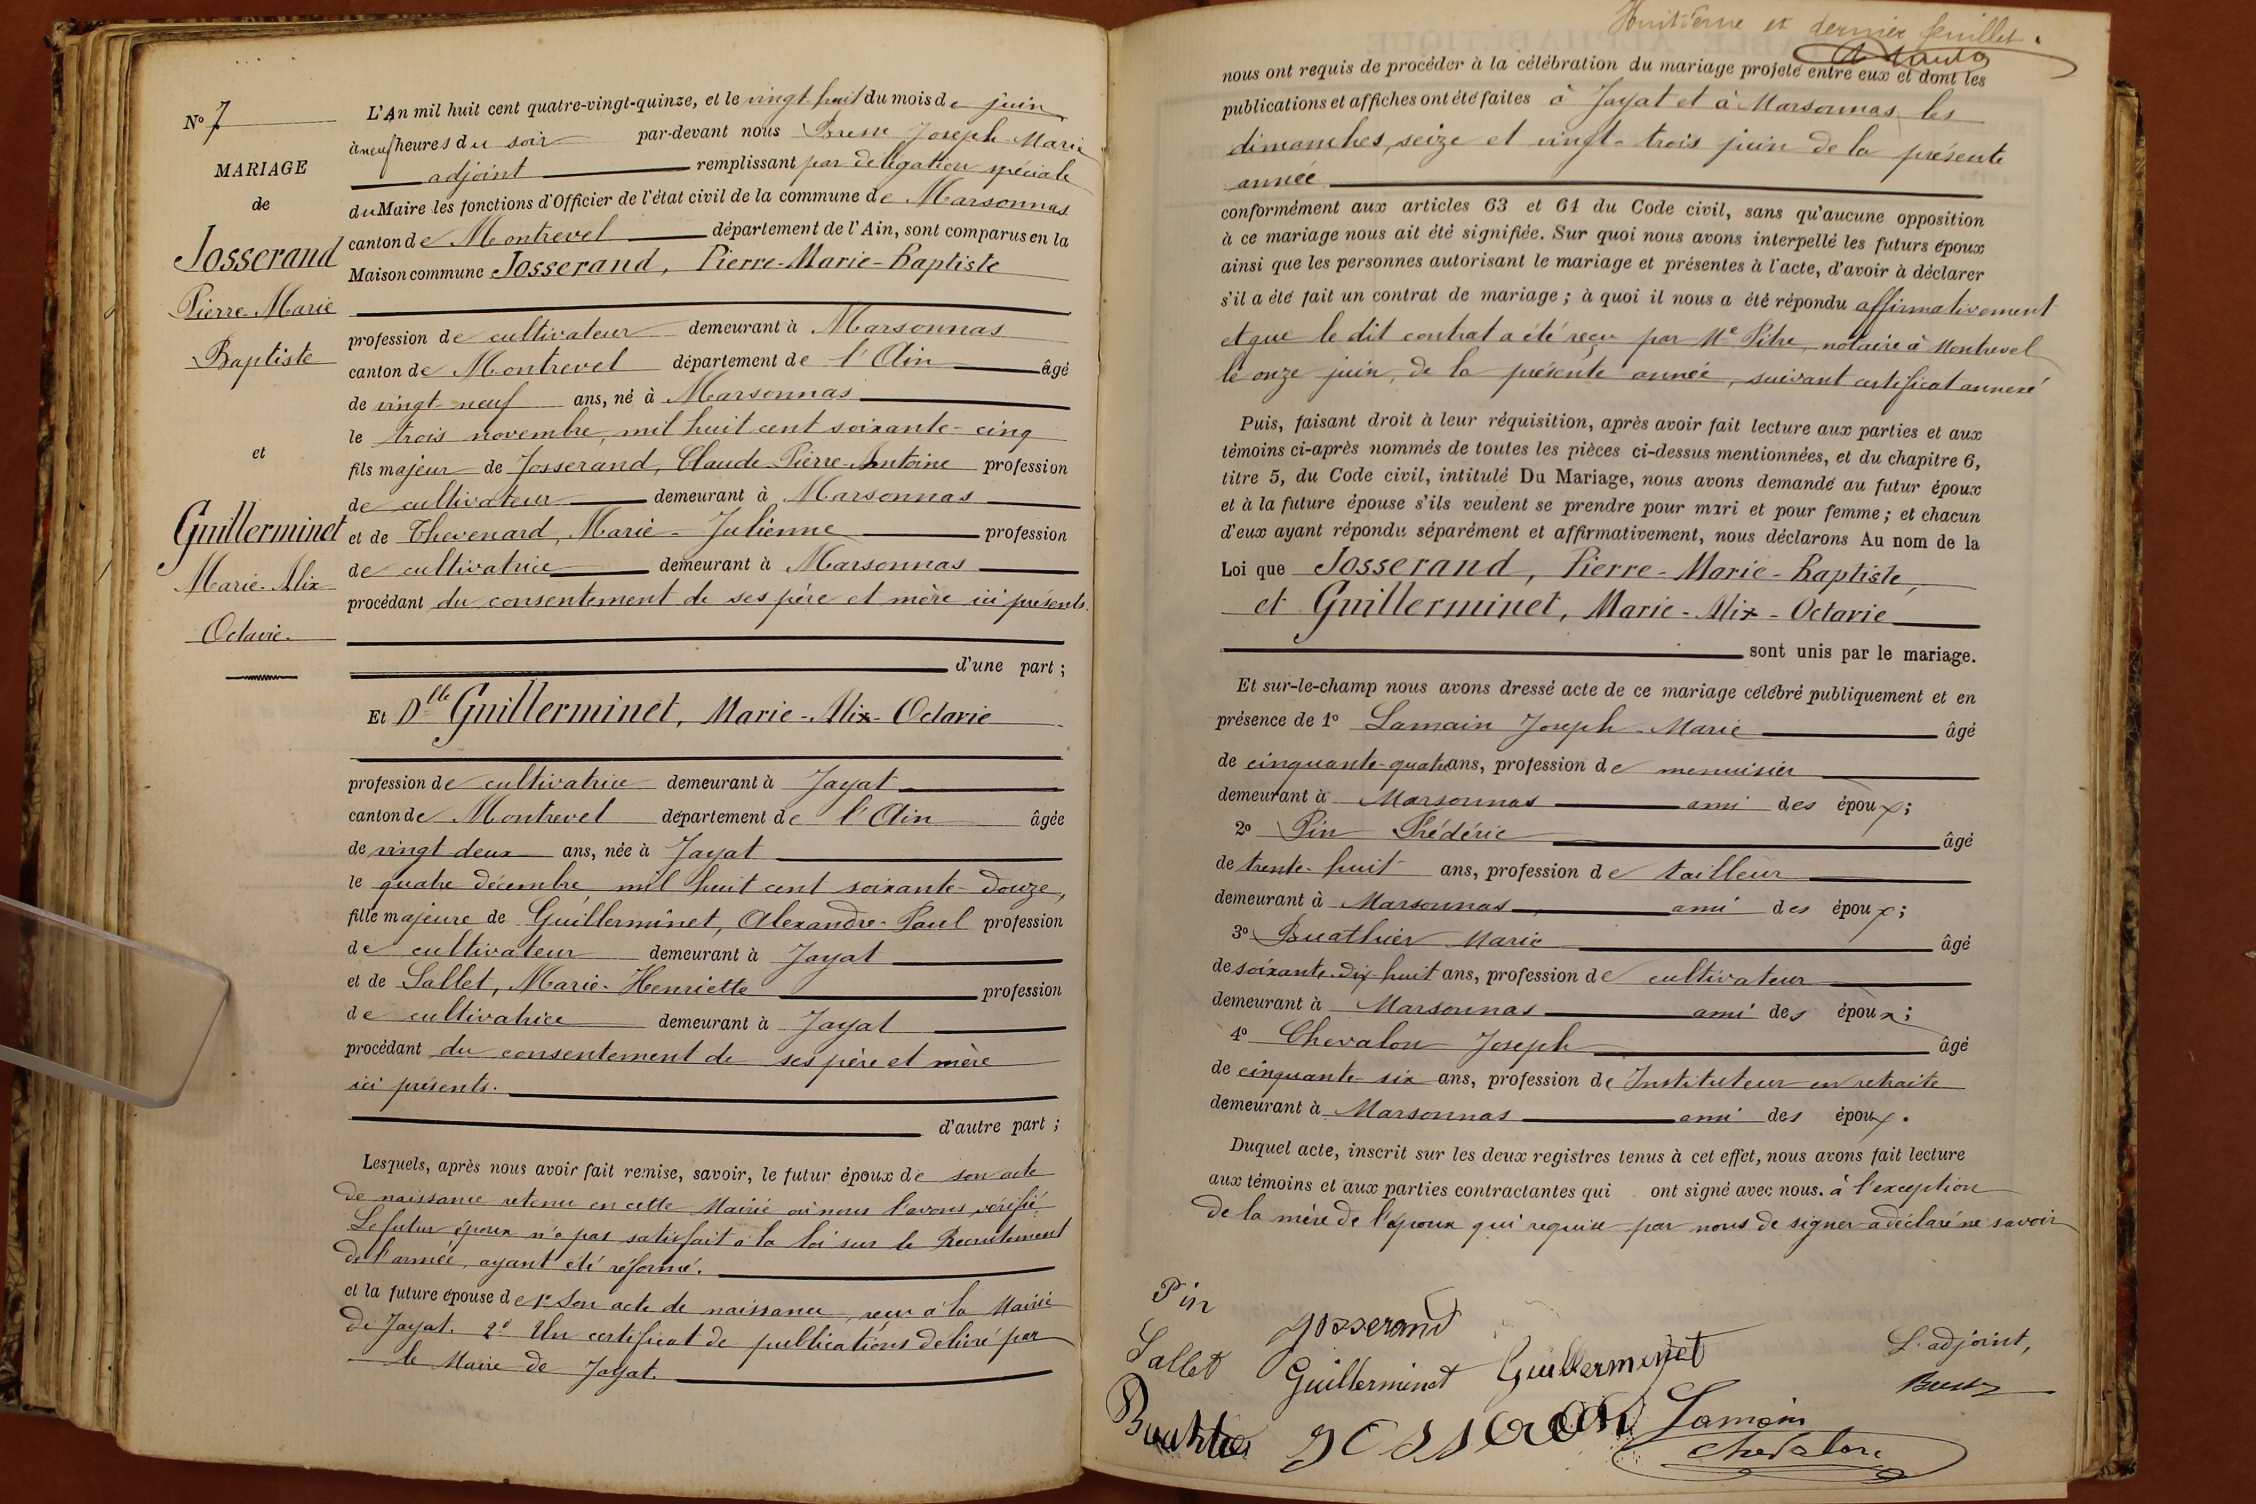 Nº 7
MARIAGE
de
Josserand
Pierre-Marie
Baptiste
et
Guillerminet
Marie-Alix
Octavie.
L'An mil huit cent quatre-vingt-quinze, et le vingt huit du mois de juin
à neuf heures du soir par-devant nous Joseph Marie
adjoint remplissant par délégation spéciale
du Maire les fonctions d'Officier de l'état civil de la commune de Marsonnas
canton de Montrevel département de l'Ain, sont comparus en la
Maison commune Josserand, Pierre-Marie-Baptiste
profession de cultivateur demeurant à Marsonnas
canton de Montrevel département de l'Ain âgé
de vingt-neuf ans, né à Marsonnas
le trois novembre, mil huit cent soixante-cinq
fils majeur de Josserand, Claude-Pierre-Antoine profession
de cultivateur demeurant à Marsonnas
et de Thevenard, Marie-Julienne profession
de cultivatrice demeurant à Marsonnas
procédant du consentement de ses père et mère ici présents.
d'une part ;
Et Dlle Guillerminet, Marie-Alix-Octavie
profession de cultivatrice demeurant à Jayat
canton de Montrevel département de l'Ain âgée
de vingt deux ans, née à Jayat
le quatre décembre mil huit cent soixante-douze,
fille majeure de Guillerminet, Alexandre-Paul profession
de cultivateur demeurant à Jayat
et de Sallet, Marie-Henriette profession
de cultivatrice demeurant à Jayat
procédant du consentement de ses père et mère
ici présents.
d'autre part ;
Lesquels, après nous avoir fait remise, savoir, le futur époux de son acte
de naissance retenu en cette Mairie où nous l'avons vérifié.
Le futur époux n'a pas satisfait à la loi sur le Recrutement
de l'armée, ayant été réformé.
et la future épouse de 1º Son acte de naissance, reçu à la Mairie
de Jayat. 2º Un certificat de publications délivré par
le Maire de Jayat.
Huitième et dernier feuillet.
nous ont requis de procéder à la célébration du mariage projeté entre eux et dont les
publications et affiches ont été faites à Jayat et à Marsonnas les
dimanches, seize et vingt-trois juin de la présente
année
conformément aux articles 63 et 64 du Code civil, sans qu'aucune opposition
à ce mariage nous ait été signifiée. Sur quoi nous avons interpellé les futurs époux
ainsi que les personnes autorisant le mariage et présentes à l'acte, d'avoir à déclarer
s'il a été fait un contrat de mariage ; à quoi il nous a été répondu affirmativement
et que le dit contrat a été reçu par Me Pitre, notaire à Montrevel
le onze juin, de la présente année, suivant certificat annexé
Puis, faisant droit à leur réquisition, après avoir fait lecture aux parties et aux
témoins ci-après nommés de toutes les pièces ci-dessus mentionnées, et du chapitre 6,
titre 5, du Code civil, intitulé Du Mariage, nous avons demandé au futur époux
et à la future épouse s'ils veulent se prendre pour mari et pour femme ; et chacun
d'eux ayant répondu séparément et affirmativement, nous déclarons Au nom de la
Loi que Josserand, Pierre-Marie-Baptiste,
et Guillerminet, Marie-Alix-Octavie
sont unis par le mariage.
Et sur-le-champ nous avons dressé acte de ce mariage célébré publiquement et en
présence de 1º Lamain Joseph-Marie âgé
de cinquante-quatre ans, profession de menuisier
demeurant à Marsonnas ami des époux ;
2º Pin Frédéric âgé
de trente-huit ans, profession de tailleur
demeurant à Marsonnas ami des époux ;
3º Buathier Marie âgé
de soixante-dix-huit ans, profession de cultivateur
demeurant à Marsonnas ami des époux ;
4º Chevalon Joseph âgé
de cinquante-six ans, profession de Instituteur en retraite
demeurant à Marsonnas ami des époux.
Duquel acte, inscrit sur les deux registres tenus à cet effet, nous avons fait lecture
aux témoins et aux parties contractantes qui ont signé avec nous. à l'exception
de la mère de l'époux qui requise par nous de signer a déclaré ne savoir
Pin
Josserand
L'adjoint,
Sallet
Guillerminet Guillerminet
Buathier Josserand Lamain
Chevalon